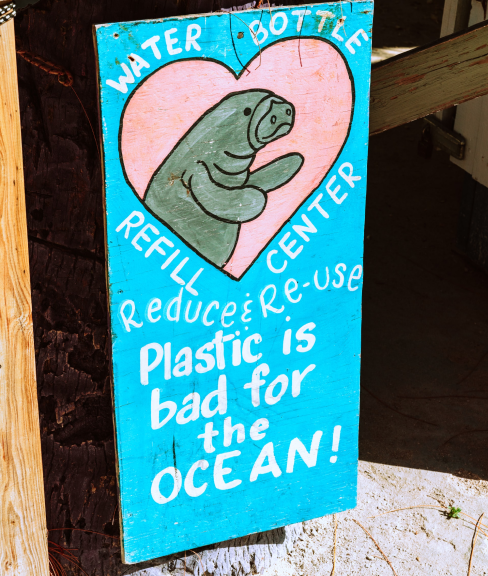 WATER BOTTLE
REFILL CENTER
Reduce & Re-use
Plastic is
bad for
the
OCEAN!